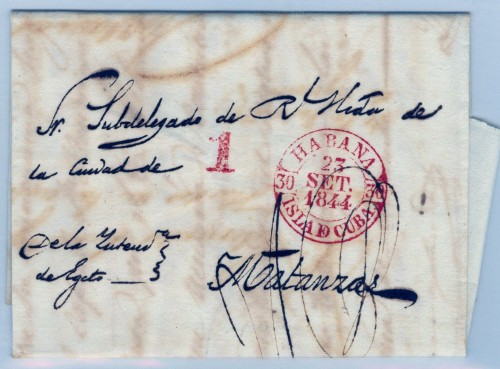 Sr. Subdelegado de Rl. Hda de
la Ciudad de
1
HABANA
23
SET.
1844
30
ISLA D CUBA
De la Intend.a
de Egto
Matanzas